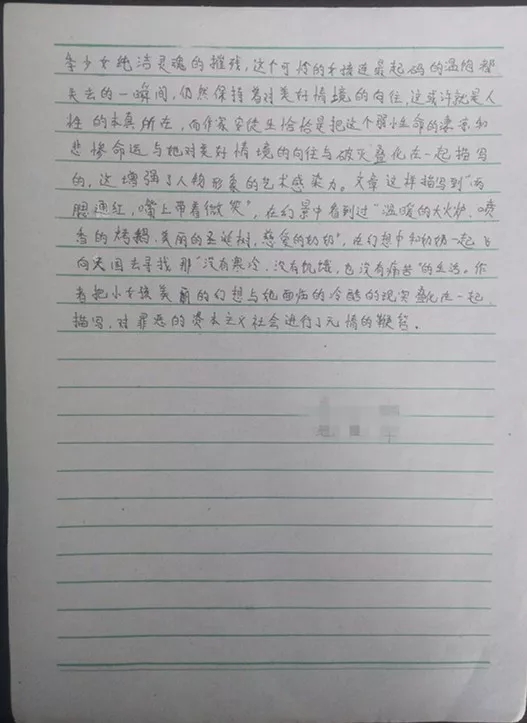 年少女纯洁灵魂的摧残,这个可怜的和接连最起码的温饱都
失去的一瞬间,仍然保持着对美好情境的向往,这或许就是人
性的本真所在,而作家安徒生恰恰是把这个弱小生命的凄苦和
悲惨命运与她对美好情境的向往与破灭叠化在一起描写
的,这增强了人物形象的艺术感染力。文章这样描写到“两
腮通红,嘴上带着微笑”,在幻景中看到过“温暖的大火炉,喷
香的烤鹅,美丽的圣诞树,慈爱的奶奶”,在幻想中和奶奶一起飞
向天国去寻找那“没有寒冷,没有饥饿,也没有痛苦”的生活。作
者把小女孩美丽的幻想与她面临的冷酷的现实叠化在一起
描写,对罪恶的资本主义社会进行了无情的鞭笞。